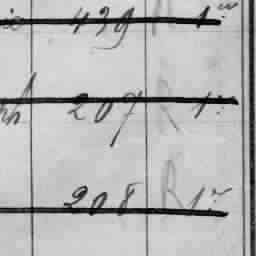 439 1er
207 R 1er
208 R 1er